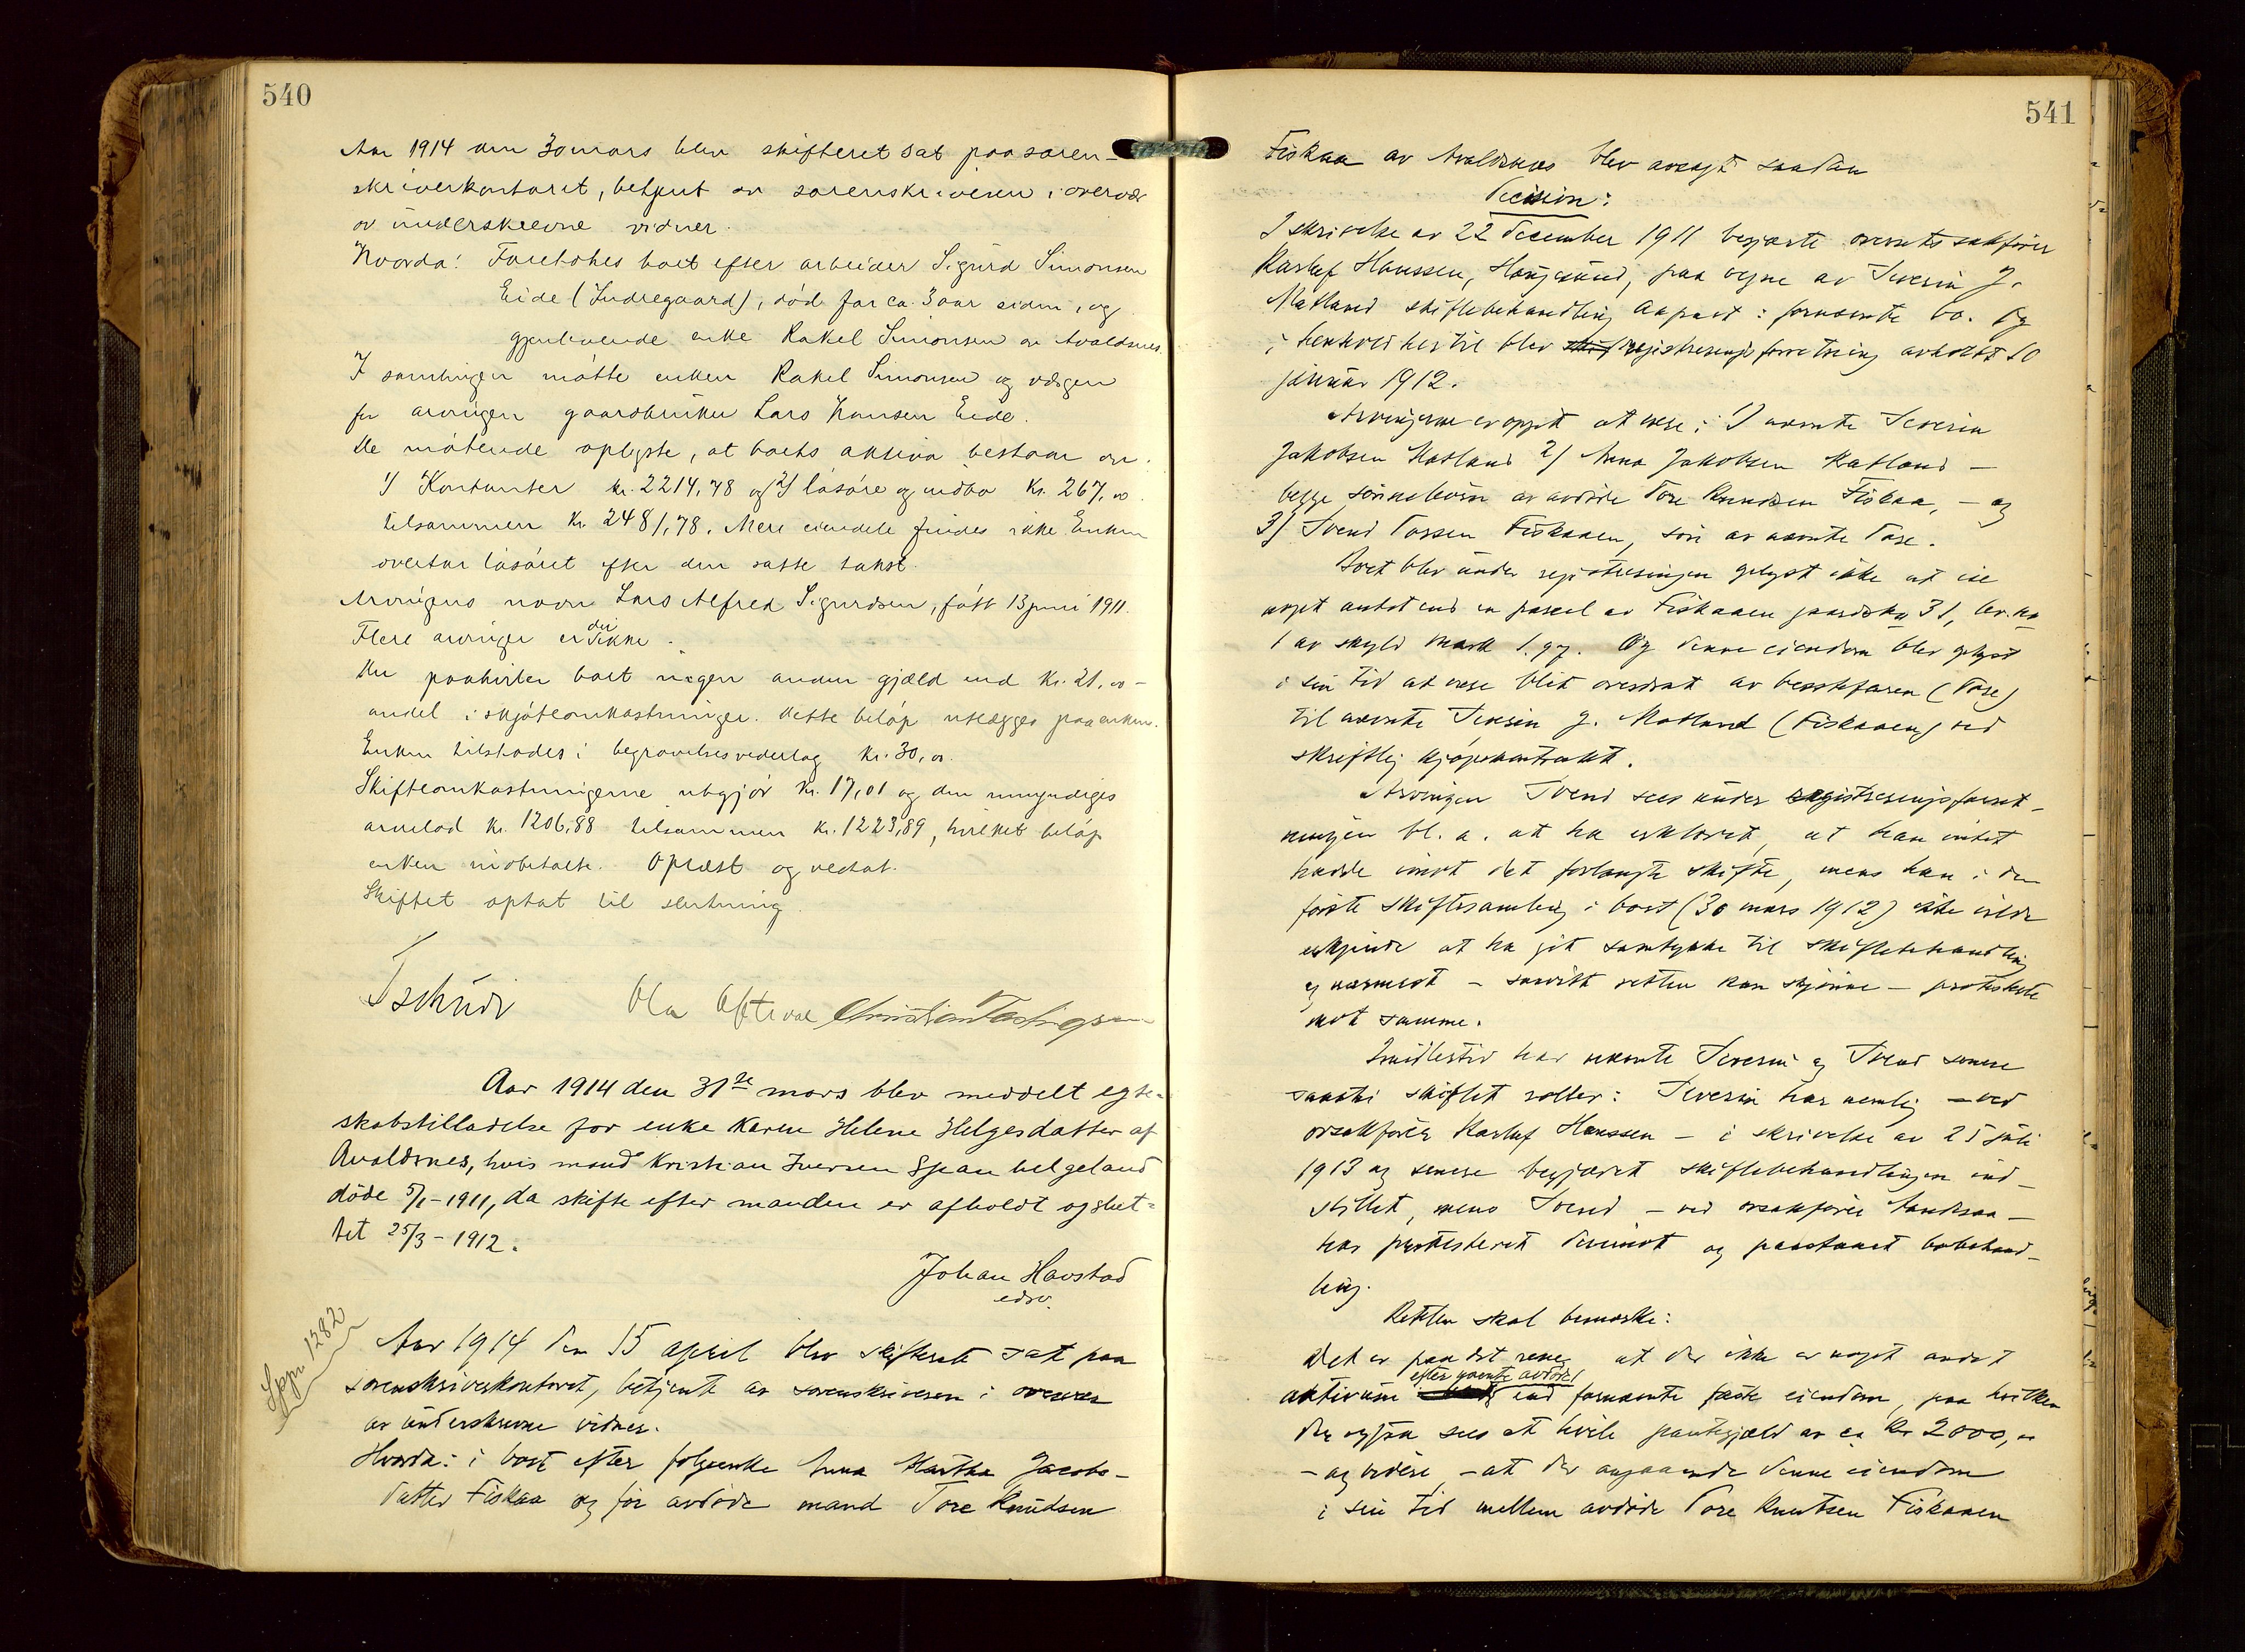 540
Aar 1914 den 30 mars blev skifteret sat paa soren-
skriverkontoret, betjent av sorenskriveren i overvær
av underskrevne vidner.
Hvorda: Foretokes boet efter arbeider Sigurd Simonsen
Eide (Indregaard), død for ca. 3 aar siden, og
gjenlevende enke Rakel Simonsen av Avaldsnes.
I samlingen møtte enken Rakel Simonsen og værgen
for arvingen gaardbruker Lars Hansen Eide.
De møtende oplyste, at boets aktiva bestaar av:
1) Kontanter kr. 2214,78 og 2) løsøre og indbo kr. 267,00
tilsammen kr. 2481,78. Mere eiendele findes ikke. Enken
overtar løsøret efter den satte takst.
Arvingens navn Lars Alfred Sigurdsen, født 13 juni 1911.
Flere arvinger er der ikke.
Der paahviler boet ingen anden gjæld end kr. 21,00 -
andel i skjøteomkostninger. Dette beløp utlægges paa enken.
Enken tilstodes i begravelsesvederlag kr. 30,00.
Skifteomkostningerne utgjør kr. 17,01 og den umyndiges
arvelod kr. 1206,88 tilsammen kr. 1223,89, hvilket beløp
enken indbetalte. Oplæst og vedtat.
Skiftet optat til slutning.
Tschudi Ola Christian
Aar 1914 den 31te mars blev meddelt egte-
skabstilladelse for enke Karen Helene Helgesdatter af
Avaldsnes, hvis mand Kristian Iversen Spanhelgeland
døde 5/1-1911, da skifte efter manden er afholdt og slut-
tet 25/3-1912.
Johan Havstad
edsv.
Sppr 1282
Aar 1914 den 15 april blev skifteret sat paa
sorenskriverkontoret, betjent av sorenskriveren i overvær
av underskrevne vidner.
Hvorda: i boet efter følgeenke Anna Martha Jacobs-
datter Fiskaa og før avdøde mand Tore Knudsen
541
Fiskaa av Avaldsnes blev avsagt saadan
Decision:
I skrivelse av 22 december 1911 begjærte overretssakfører
Karluf Hanssen, Haugesund, paa vegne av Severin J.
Matland skiftebehandling aapnet i fornævnte bo. Og
i henhold hertil blev skif registreringsforretning avholdt 10
januar 1912.
Arvingerne er opgit at være: 1) nævnte Severin
Jakobsen Matland 2) Anna Jakobsen Matland -
begge sønnebørn av avdøde Tore Knudsen Fiskaa, - og
3) Svend Torsen Fiskaaen, søn av nævnte Tore.
Boet blev under registreringen oplyst ikke at eie
noget andet end en parcel av Fiskaaen gaardsno 31, br.no
1 av skyld mark 1.97. Og denne eiendom blev oplyst
i sin tid at være blit overdrat av bestefaren (Tore)
til nævnte Severin J. Matland (Fiskaaen) ved
skriftlig kjøpekontrakt.
Arvingen Svend sees under registreringsforret-
ningen bl. a. at ha erklæret, at han intet
hadde imot det forlangte skifte, mens han i den
første skiftesamling i boet (30 mars 1912) ikke vilde
erkjende at ha git samtykke til skiftebehandling
og nærmest - saavidt retten kan skjønne - protesterte
mot samme.
Imidlertid har nævnte Severin og Svend senere
saa at si skiftet roller: Severin har nemlig - ved
orsakfører Karluf Hanssen - i skrivelse av 25 juli
1913 og senere begjæret skiftebehandlingen ind-
stillet, mens Svend - ved orsakfører -
har protesteret derimot og paastaaet bobehand-
ling.
Retten skal bemerke:
Det er paa det rene, at der ikke er noget andet
efter nævnte avdøde
aktivum end fornævnte faste eiendom, paa hvilken
der ogsaa sees at hvile pantegjæld av ca kr 2000,00
- og videre, - at der angaaende denne eiendom
i sin tid mellem avdøde Tore Knutsen Fiskaaen